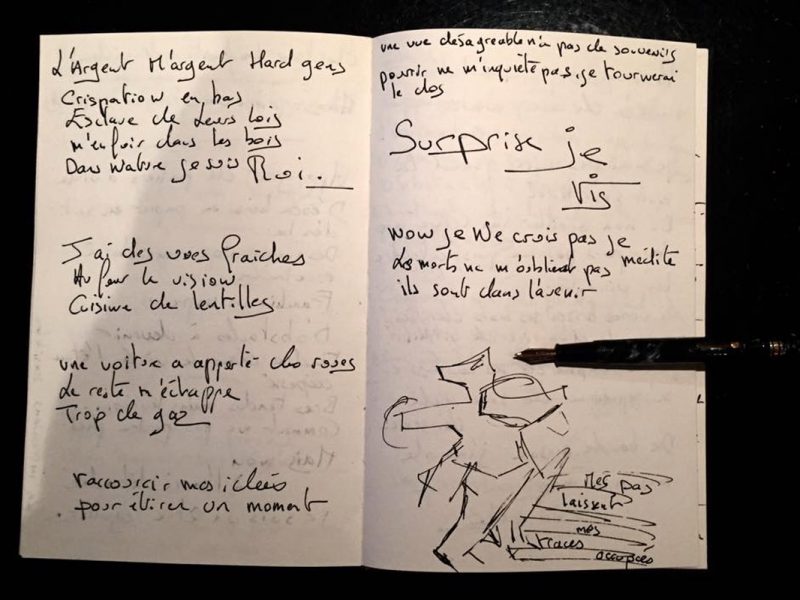 L'Argent M'argent Hard gens
Crispation en bas
Esclave de leurs lois
m'enfuir dans les bois
Dans Nature je suis Roi.
J'ai des vues fraîches
Au four la vision
Cuisine de lentilles
une voiture a apporté des roses
Le reste m'échappe
Trop de gaz
raccourcir mes idées
pour étirer un moment
une vue désagreable n'a pas de souvenirs
pourrir ne m'inquiète pas, je tournerai
le dos
Surprise je
vis
now je ne crois pas je
médite
Les morts ne m'oublient pas
ils sont dans l'avenir
Mes pas
laissent
mes
traces
occupées